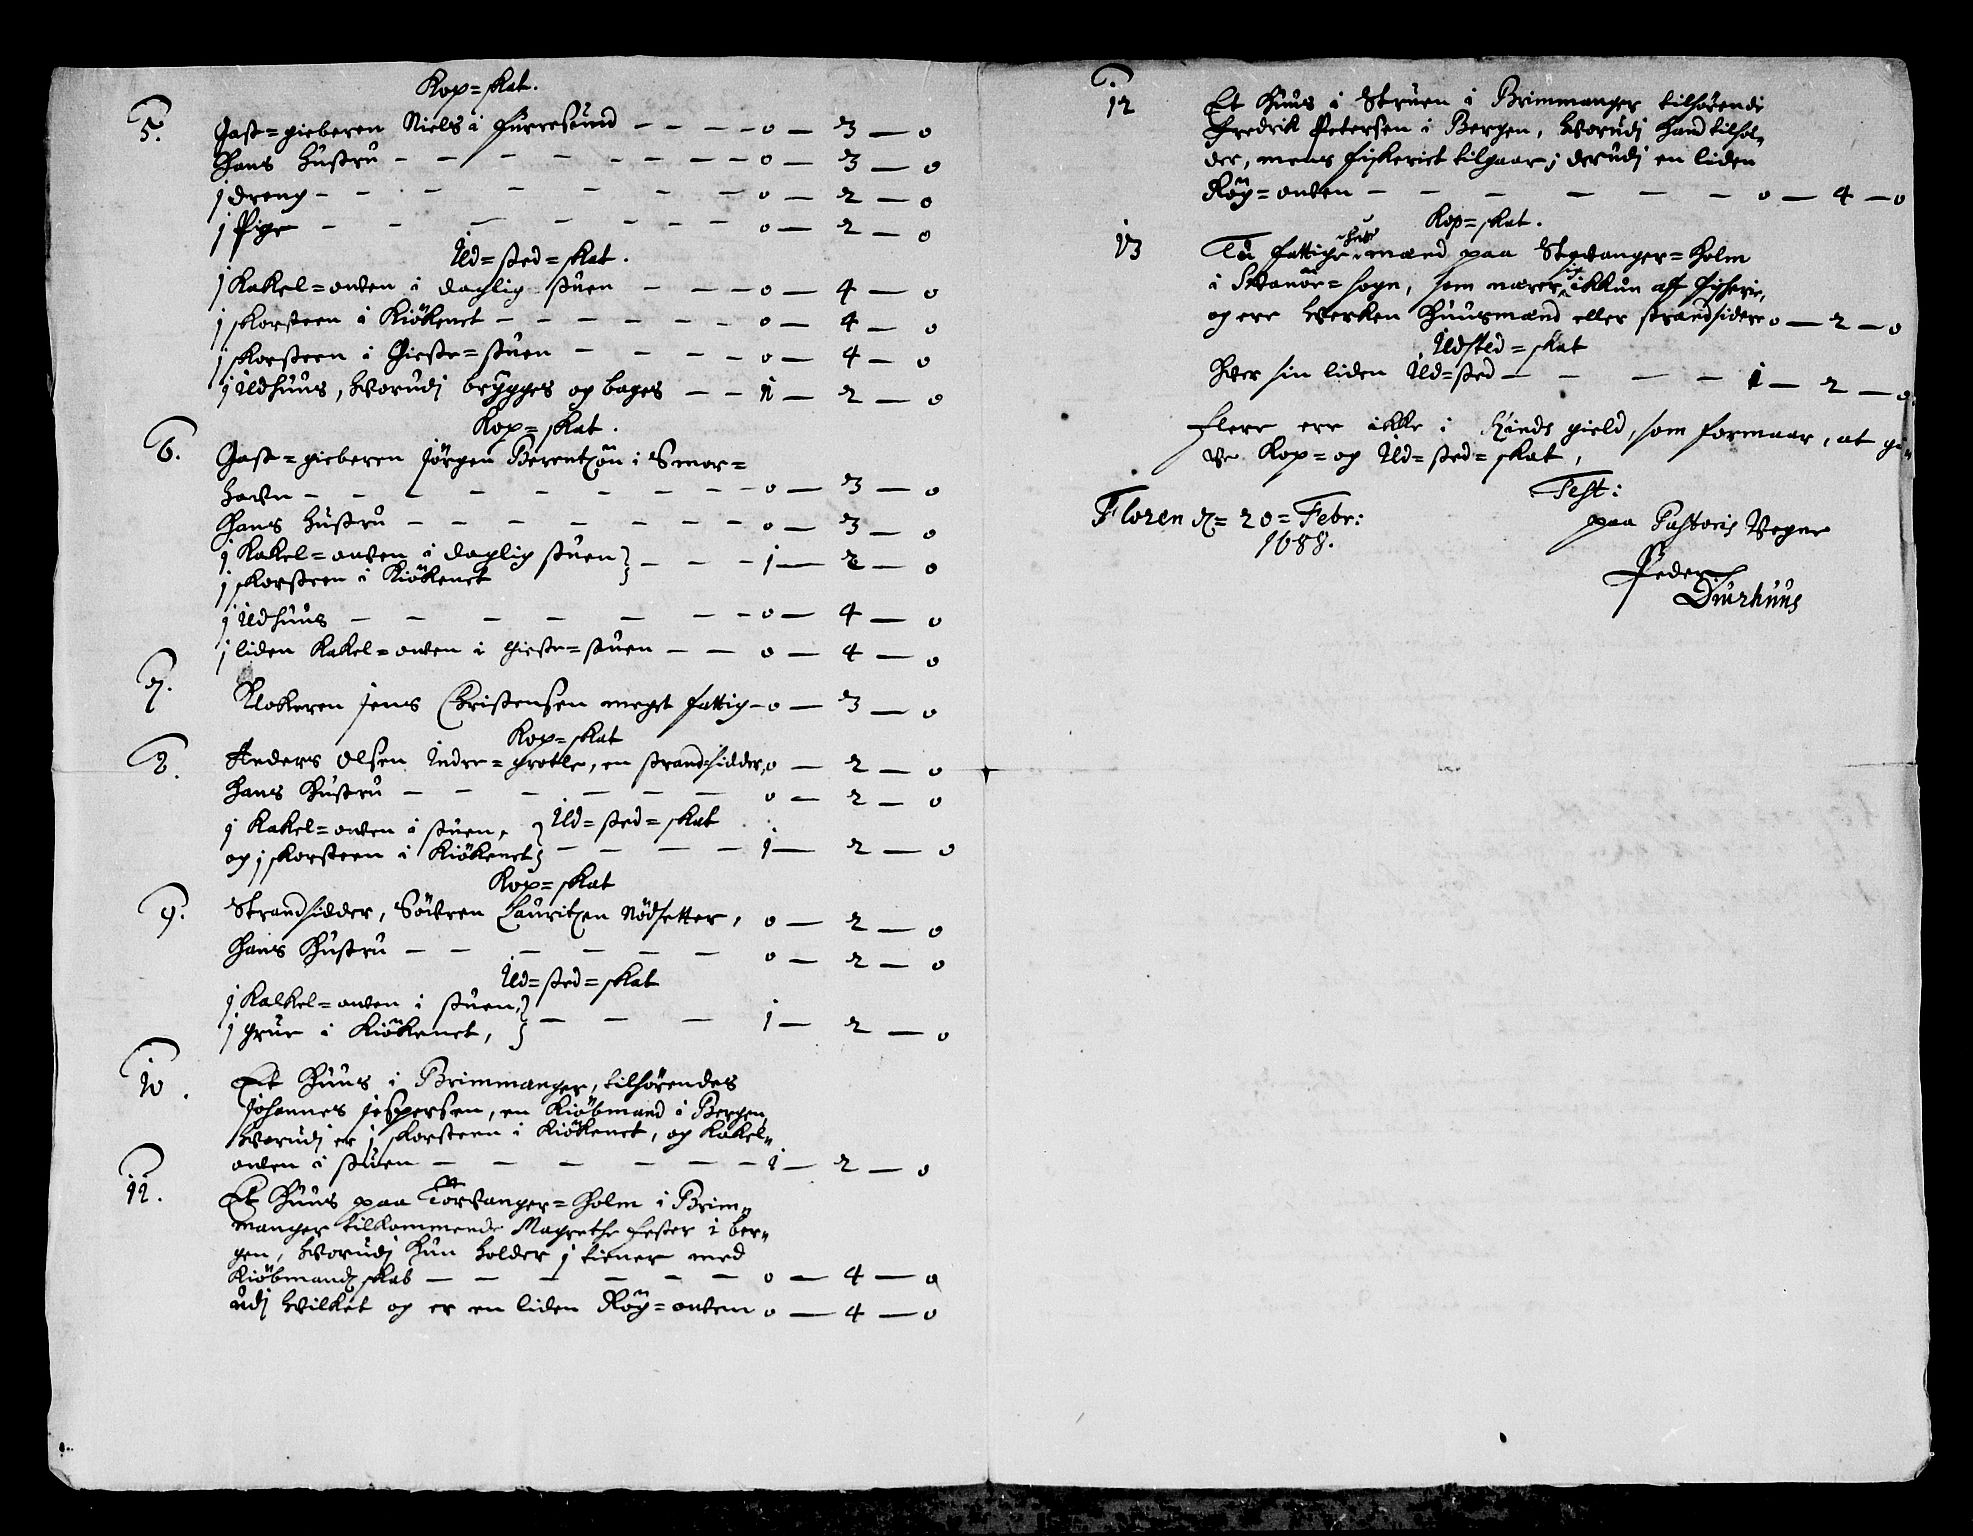 Kop=skat.
5. Gast=gieberen Niels i Furresund - - - - 0 — 3 — 0
Hans Hustru - - - - - - - - 0 — 3 — 0
j dreng - - - - - - - - 0 — 2 — 0
j Pige - - - - - - - - 0 — 2 — 0
Ild=sted=skat.
j Kakel=owen i daglig stuen - - - 0 — 4 — 0
j skorsteen i Kiökenet - - - - - - 0 — 4 — 0
j skorsteen i Gieste=stuen - - - - 0 — 4 — 0
j Ildhuus, hvorudj brygges og bages - - 1 — 2 — 0
Kop=skat.
6. Gast=gieberen Jörgen Berentzön i Smor=
hawn - - - - - - - - 0 — 3 — 0
Hans Hustru - - - - - - - - 0 — 3 — 0
j Kakel=owen i daglig stuen }
j skorsteen i Kiökenet } - - - 1 — 2 — 0
j Ildhuus - - - - - - - 0 — 4 — 0
j liden Kakel=owen i Gieste=stuen - - 0 — 4 — 0
7. Klokeren Jens Christensen meget fattig - 0 — 3 — 0
Kop=skat
8. Anders Olsen Indre=grotle, en strandsidder, 0 — 2 — 0
Hans Hustru - - - - - - 0 — 2 — 0
Ild=sted=skat
j Kakel=owen i stuen, }
og j skorsteen i Kiökenet } - - - - 1 — 2 — 0
Kop=skat
9. Strandsidder, Söwren Lauritzen Nödsetter, 0 — 2 — 0
Hans Hustru - - - - - - 0 — 2 — 0
Ild=sted=skat
j Kalkel=owen i stuen, }
j grue i Kiökenet, } - - - 1 — 2 — 0
10. Et Huus i Brimmanger, tilhörendes
Johannes Jespersen, en Kiöbmand i Bergen,
hvorudj er j skorsteen i Kiökenet, og Kakel=
owen i stuen - - - - - - 1 — 2 — 0
11. Et Huus paa Torvanger=Holm i Brim=
manger tilkommende Magrethe Fester i ber=
gen, hvorudj hun holder j tiener med
Kiöbmandskab - - - - - - 0 — 4 — 0
udj hvilket og er en liden Rög=owen 0 — 4 — 0
12 Et Huus i Struen i Brimmanger tilhörendi
Fredrik Petersen i Bergen, hvorudj hand tilhol=
der, mens fiskeriet tilgaar; derudj en liden
Rög=owen - - - - - - 0 — 4 — 0
Kop=skat.
13 Tu fattige huusmænd paa Stavanger=Holm
i Svanöe=sogn, som nærer sig ikkun aff fiskerie,
og ere hverken Huusmænd eller strandsidere 0 — 2 — 0
Ildsted=skat
Hver sin liden Ild=sted - - - - 1 — 2 — 0
Flere ere ikke i Kinds gield, som formaar, at gi=
ve Kop= og Ild=sted=skat,
Test:
Floren d. 20 = Febr:
1688.
paa Pastoris Vegne
Peder
Duurhuus